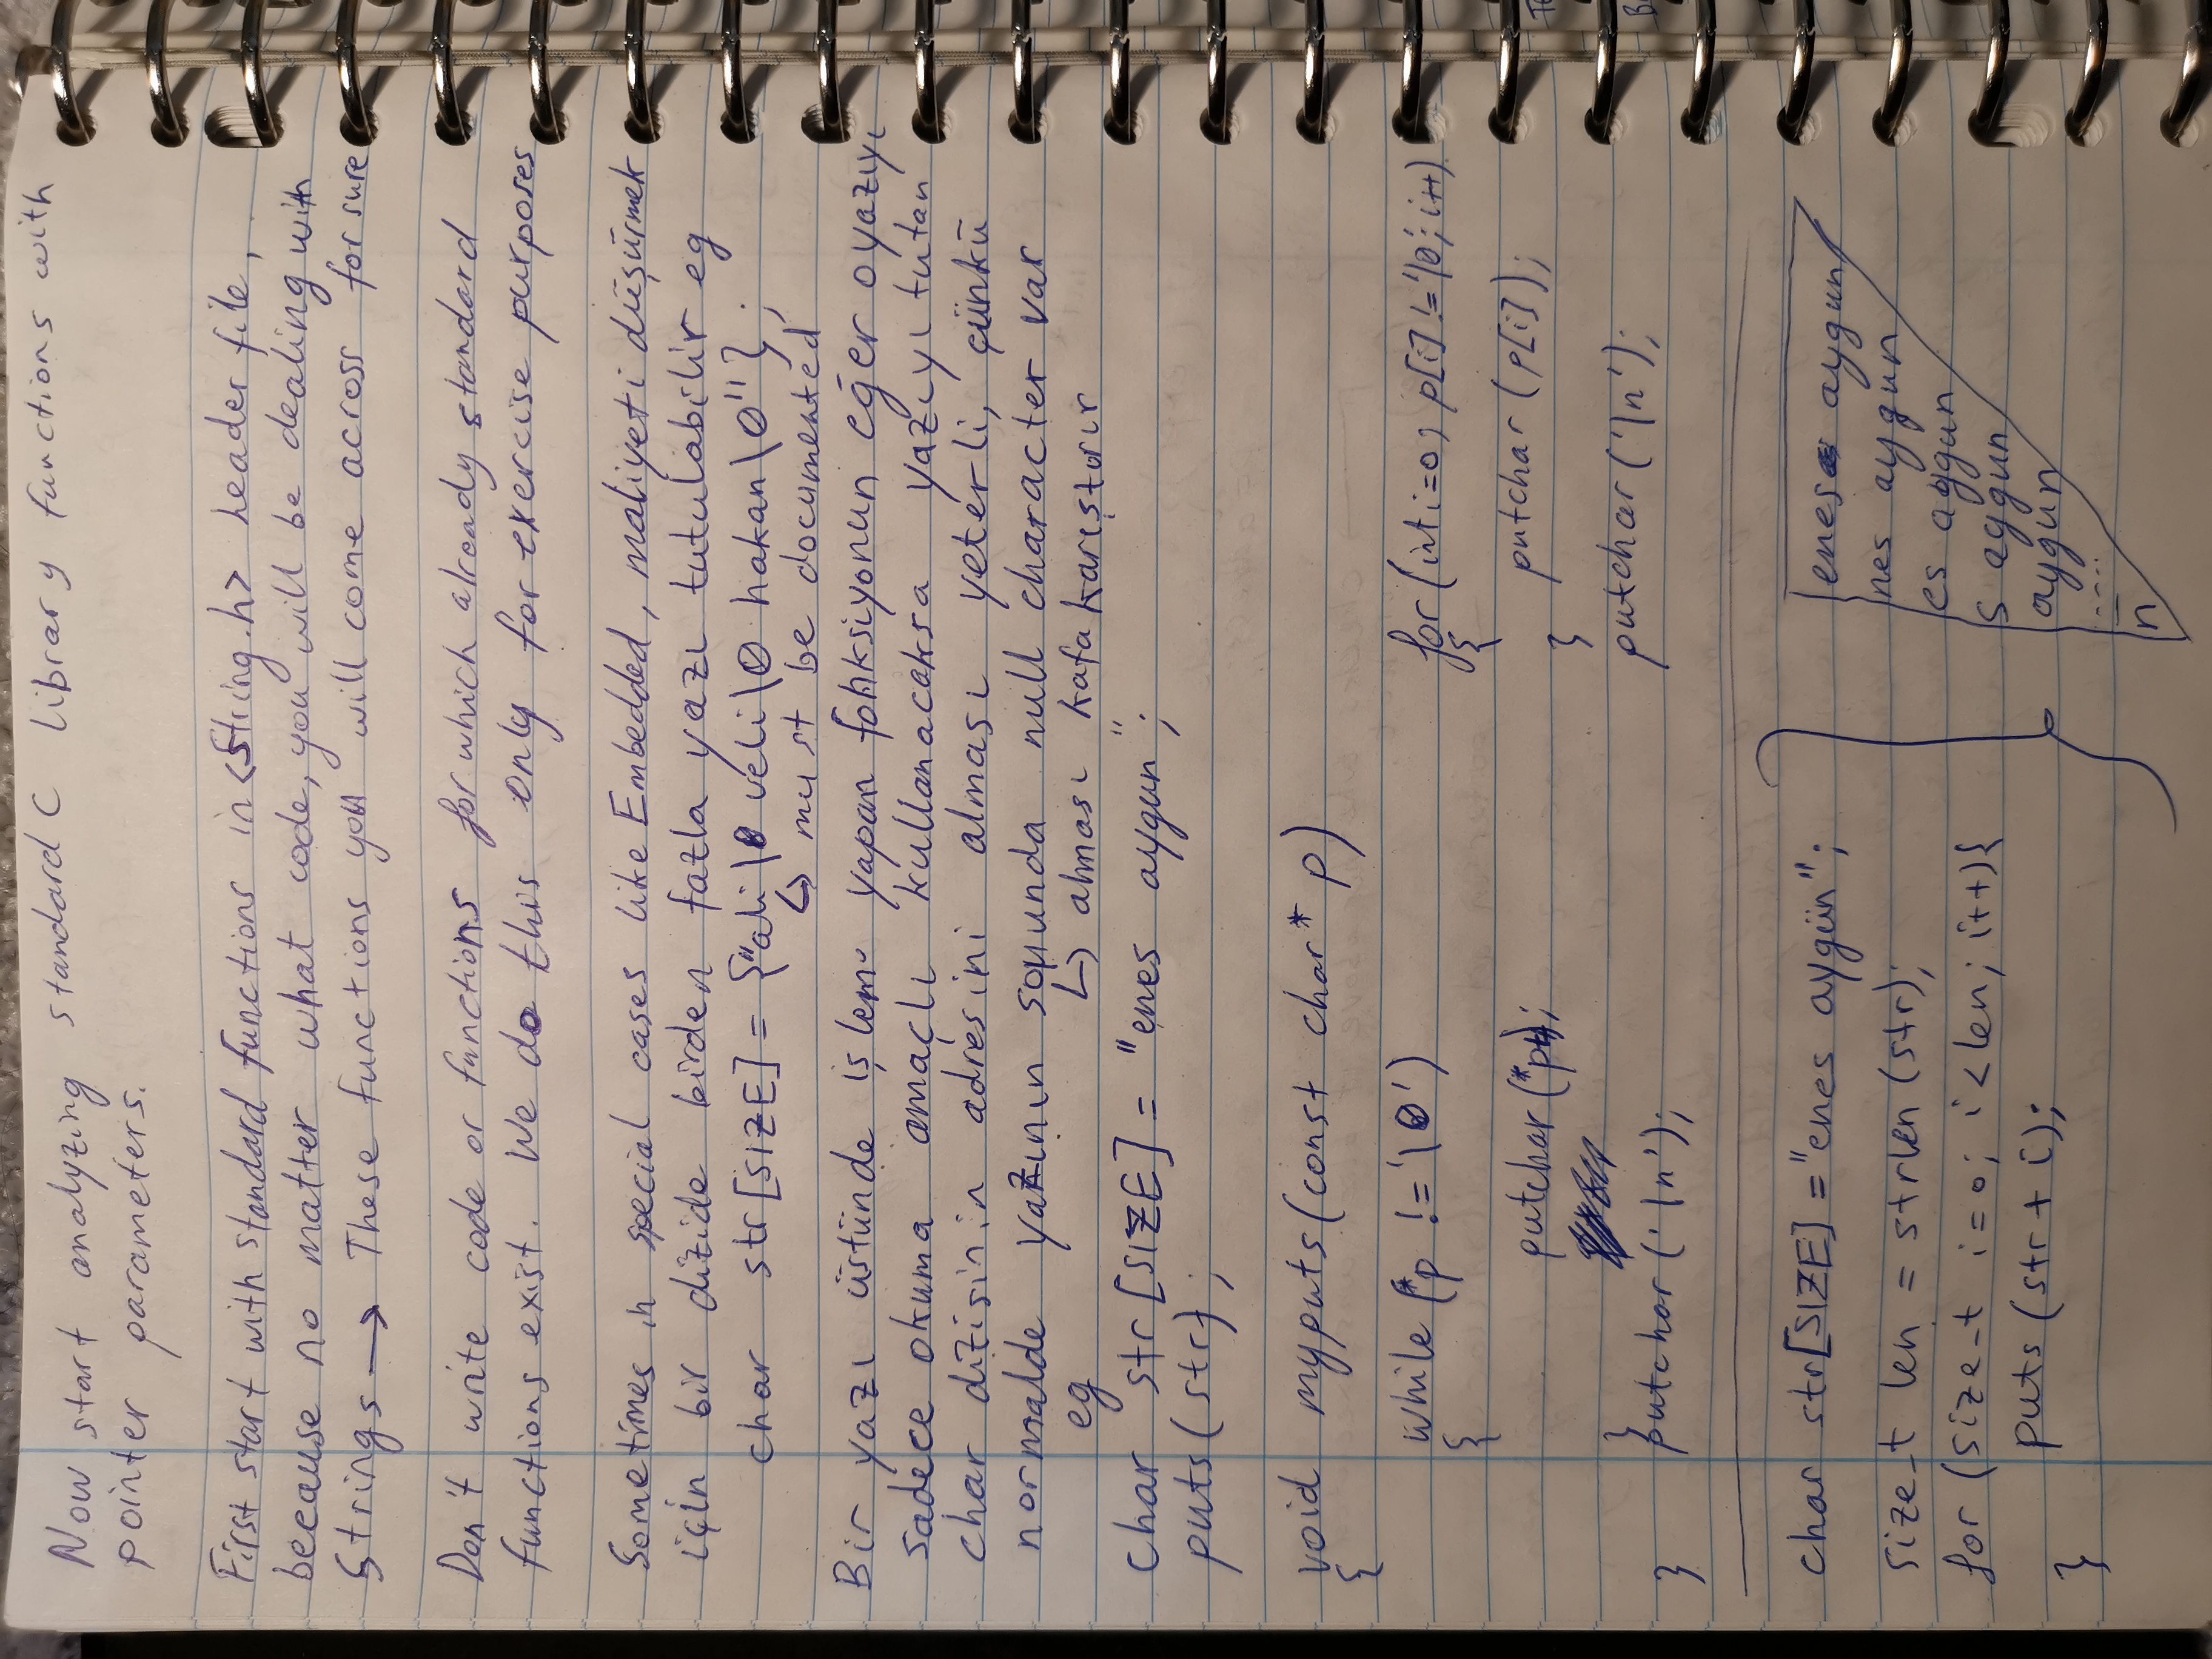 Now start analyzing standard C library functions with
pointer parameters.
First start with standard functions in <String.h> header file,
because no matter what code, you will be dealing with
Strings → These functions you will come across for sure
Don't write code or functions for which already standard
functions exist. We do this only for exercise purposes
Sometimes in special cases like Embedded, maliyeti düşürmek
için bir dizide birden fazla yazı tutulabilir eg
char str[SIZE] = {"ali\0 veli\0 hakan\0"};
↳ must be documented
Bir yazı üstünde işlem yapan fonksiyonun eğer o yazıyı
sadece okuma amaçlı kullanacaksa yazıyı tutan
char dizisinin adresini alması yeterli, çünkü
normalde yazının sonunda null character var
eg ↳ alması kafa karıştırır
char str[SIZE] = "enes aygun";
puts(str);
void myputs(const char* p)
{
while (*p != '\0')
{
putchar(*p++);
}
putchar('\n');
}
for (int i=0; p[i] != '\0'; i++)
{
putchar (p[i]);
}
putchar ('\n');
char str[SIZE] = "enes aygün";
size_t len = strlen (str);
for (size_t i=0; i<len; i++){
puts (str + i);
}
enes aygun
nes aygun
es aygun
s aygun
aygun
.....
n